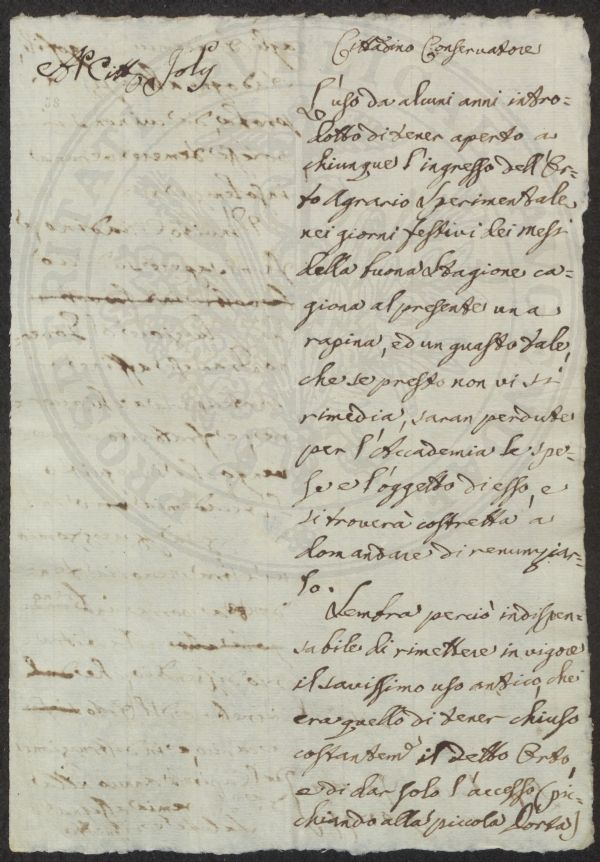 Al Citt. Joly
Cittadino Conservatore
L'uso da alcuni anni intro-
dotto di tener aperto a
chiunque l'ingresso dell'Or-
to Agrario Sperimentale
nei giorni festivi dei mesi
della buona Stagione ca-
giona al presente una
rapina, ed un guasto tale,
che se presto non vi si
rimedia, saran perdute
per l'Accademia le spe-
se e l'oggetto di esso, e
si troverà costretta a
domandare di renunziar-
lo.
Sembra perciò indispen-
sabile di rimettere in vigore
il savissimo uso antico, che
era quello di tener chiuso
costantem.e il detto Orto,
e di dar solo l'accesso (pic-
chiando alla piccola Porta)